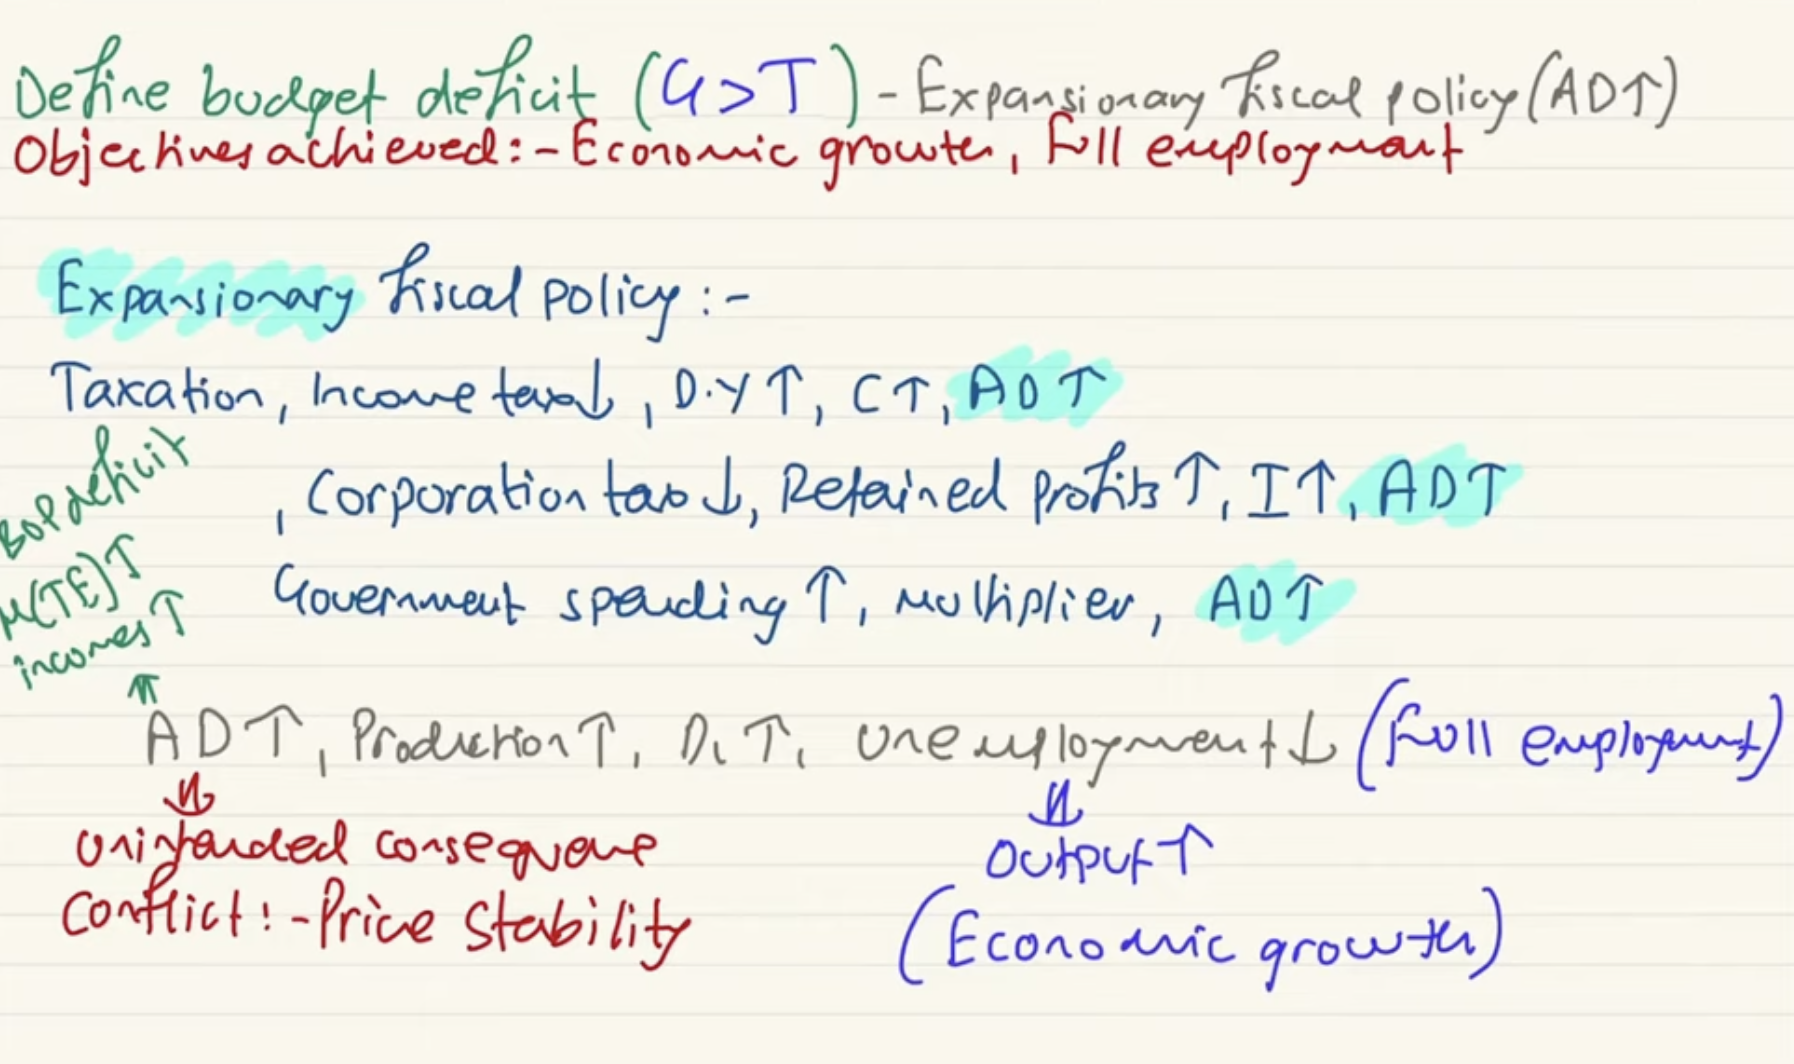 Define budget deficit (G>T) - Expansionary fiscal policy (AD↑)
Objectives achieved:- Economic growth, full employment
Expansionary fiscal policy:-
Taxation, Income tax↓, D.Y↑, C↑, AD↑
, Corporation tax↓, Retained profits↑, I↑, AD↑
Government spending↑, multiplier, AD↑
BOP deficit
M(TE)↑
incomes↑
⇑
AD↑, Production↑, DL↑, unemployment↓ (full employment)
⇓
unintended consequence
Conflict:- Price Stability
⇓
Output↑
(Economic growth)